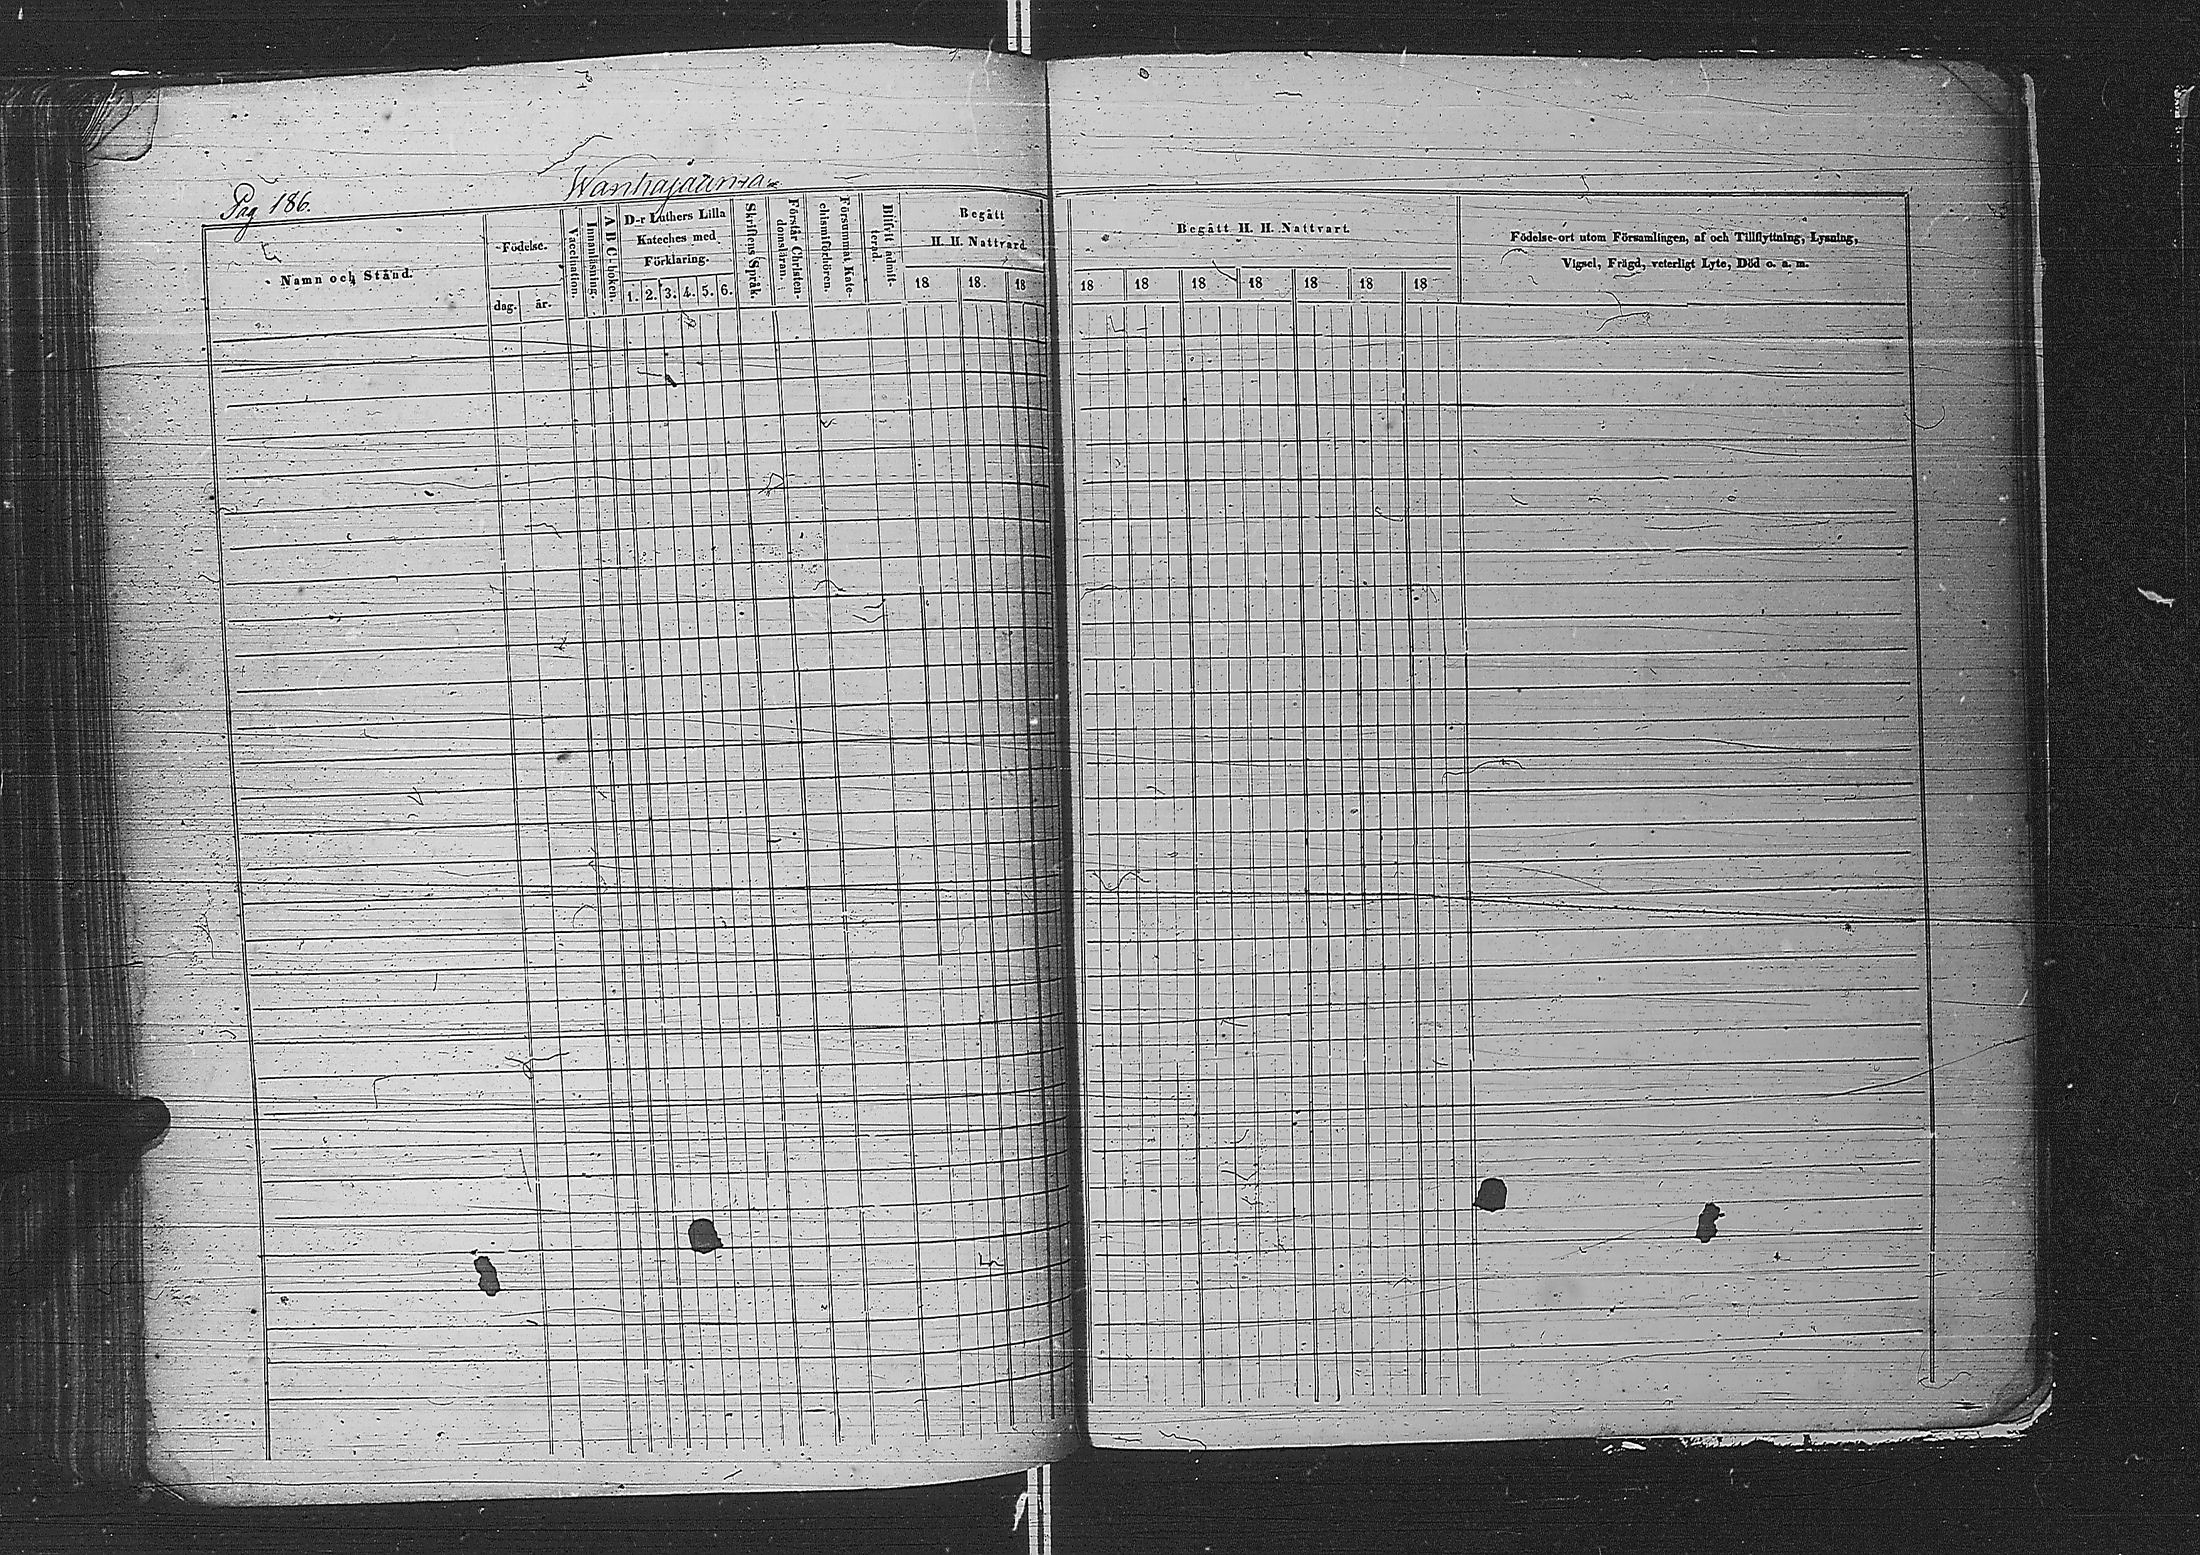 Pag 186.
Wanhajaama
Namn och Stånd.
Födelse.
dag.
år.
Vaccination.
Innanläsning.
A B C-boken.
D-r Luthers Lilla
Kateches med
Förklaring.
1. 2. 3. 4. 5. 6.
Skriftens Språk.
Förstår Christen-
domsläran.
Försummat Kate-
chismiförhören.
Blifvit admit-
terad.
Begått
H. H. Nattvard.
18 18 18
Begått H. H. Nattvart.
18 18 18 18 18 18 18
Födelse-ort utom Församlingen, af och Tillflyttning, Lysning,
Vigsel, Frägd, veterligt Lyte, Död o. s. m.